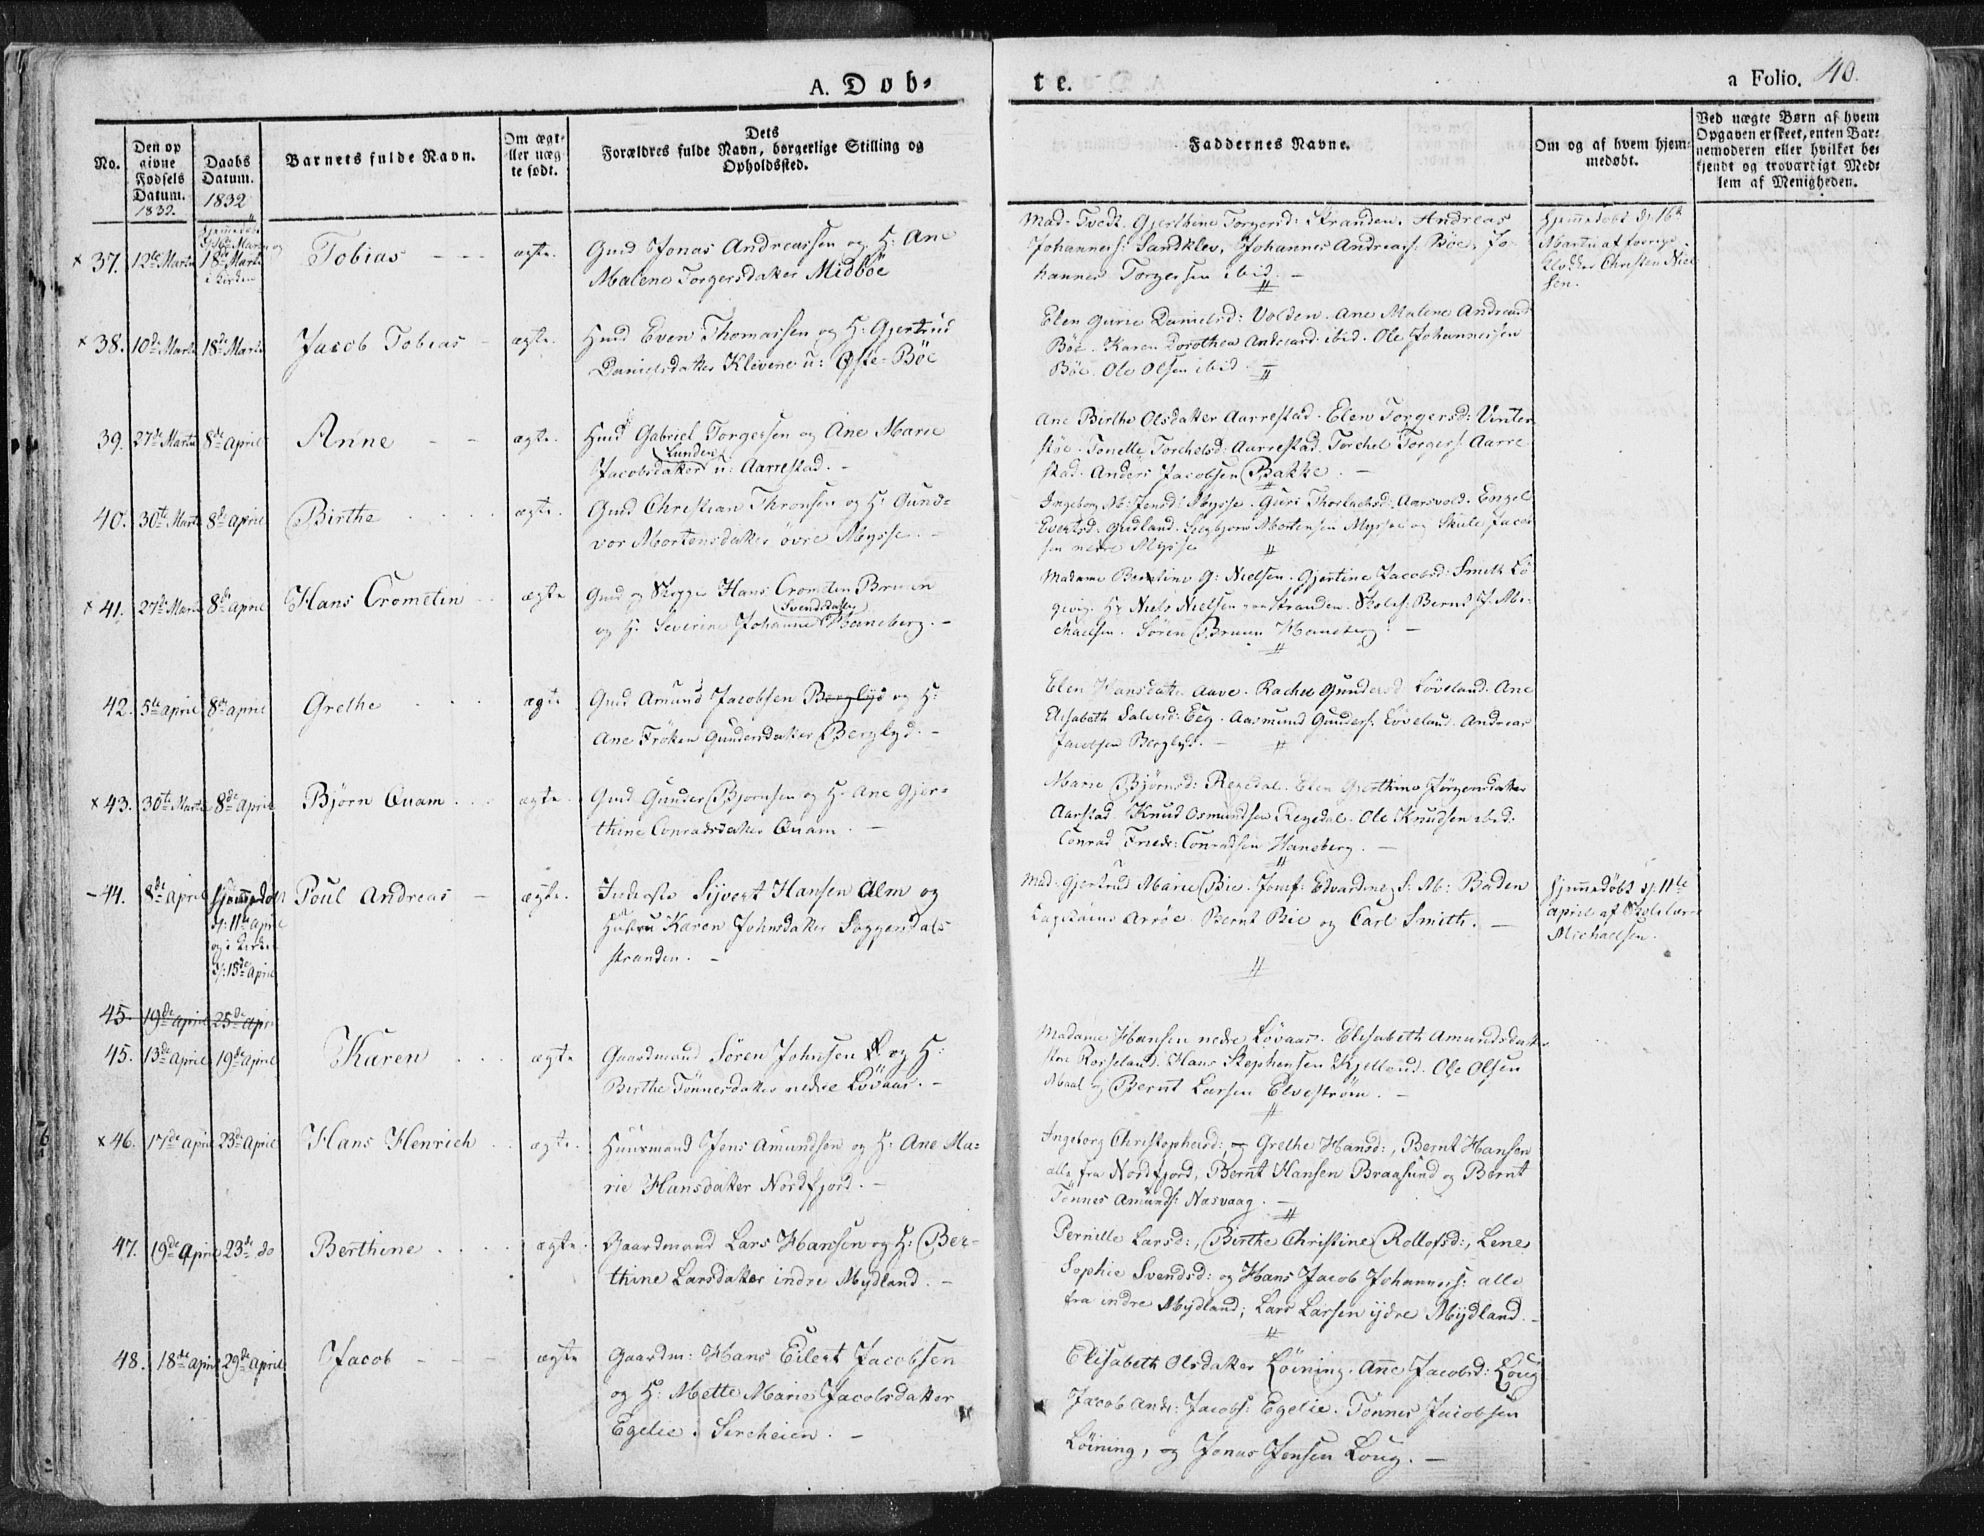 A. Døb-
te.
a Folio. 40.
No.
Den op
givne
Fødsels
Datum.
1832.
Daabs
Datum.
1832
Barnets fulde Navn.
Om ægt-
eller næg
te født.
Dets
Forældres fulde Navn, borgerlige Stilling og
Opholdssted.
Faddernes Navne.
Om og af hvem hjem-
medøbt.
Ved uægte Børn af hvem
Opgaven er skeet, enten Bar-
nemoderen eller hvilket be-
kjendt og troværdigt Med-
lem af Menigheden.
× 37. 12te Martii
18de Martii
i Kirken
Tobias
ægte.
Gmd Jonas Andreassen og H: Ane
Malene Torgersdatter Midbøe
Mad. Tvedt. Gjerthine Torgersd: Stranden. Andreas
Johanness: Sandklev, Johannes Andreas: Bøe, Jo-
hannes Torgersen ibid. -
Hjemmedøbt d: 16de
Martii af forrige
Klokker Christen Niel
sen.
× 38. 10de Martii 18de Martii Jacob Tobias - ægte.
Hmd Even Thomassen og H: Gjertrud
Danielsdatter Klevene u: Øste-Bøe
Elen Gurie Danielsd: Volden. Ane Malene Andreasd
Bøe. Karen Dorothea Andreasd ibid. Ole Johannessen
Bøe. Ole Olsen ibid.
39. 27de Martii 8de April Anne - - ægte.
Hmd Gabriel Torgersen og Ane Marie
Lunden
Jacobsdatter u: Aarrestad. -
Ane Birthe Olsdatter Aarrestad. Elen Torgersd: Vinter
støe. Tonette Torchelsd: Aarrestad. Torchel Torgers: Aarre
stad. Anders Jacobsen Bakke. -
40. 30te Martii 8de April Birthe ægte.
Gmd Christian Thronsen og H: Gund-
vor Mortensdatter øvre Mysse. -
Ingeborg M: Jensd: Mysse. Guri Thorlachsd: Aarsvold. Engel
Evertsd. Gudland. Sigbjørn Mortensen Mysse og Skule Jacob
sen nedre Mysse
× 41. 27de Martii 8de April Hans Crometin - - ægte
Gmd og Skipper Hans Crometin Bruun
Svendsdatter
og H: Severine Johanne Haneberg. -
Madame G: Nielsen. Gjertine Jacobsd: Smith Lø
gevig. Hr Niels Nielsen Stranden. Skoleh: Bernt J. Mi-
chaelsen. Søren Bruun Haneberg: -
42. 5te April 8de April Grethe ægte
Gmd Amund Jacobsen Berglyd og H:
Ane Frøken Gundersdatter Berglyd. -
Elen Hansdatter Aave. Rachel Gundersd Løveland. Ane
Elisabeth Salvesd: Eeg. Aasmund Gunders: Løveland. Andreas
Jacobsen Berglyd. -
× 43. 30te Martii 8de April Bjørn Quam ægte.
Gmd Gunder Bjørnsen og H: Ane Gjer-
thine Conradsdatter Quam. -
Marie Bjørnsd: Regedal. Elen Gjerthine Jørgensdatter
Aarstad. Knud Osmundsen Regedal. Ole Knudsen ibid.
Conrad Friedr: Conradsen Haneberg. -
- 44. 8de April
Hjemmedøbt
d: 11te April
og i Kirken
d: 15de April
Poul Andreas - ægte.
Inderste Sijvert Hansen Alm og
Hustru Karen Johnsdatter Soggendals
stranden. -
Mad. Gjertrud Marie Bie. Jomf: Edvardine S: M: Buden
Lagesens Arrøe. Bernt Bie og Carl Smith. -
Hjemmedøbt d: 11te
April af Skolelærer
Michaelsen.
45. 19de April 25de Apr
45. 13de April 19de April Karen ægte
Gaardmand Søren Johnsen og H:
Birthe Tønnesdatter nedre Løvaas. -
Madame Hansen nedre Løvaas. Elisabeth Amundsdatter
Rosseland. Hans Stephensen Kjelland. Ole Olsen
Maal og Bernt Larsen Elvestrøm. -
× 46. 17de April 23de April Hans Henrich ægte.
Huusmand Jens Amundsen og H: Ane Ma-
rie Hansdatter Nordfjord. -
Ingeborg Christophersd: og Grethe Hansd:, Bernt Hansen
alle fra Nordfjord, Bernt Hansen Braasund og Bernt
Tønnes Amunds: Nasvaag. -
47. 19de April 23de do Berthine ægte.
Gaardmand Lars Hansen og H: Ber-
thine Larsdatter indre Mydland. -
Pernille Larsd:, Birthe Christine Rollofsd:, Lene
Sophie Svendsd: og Hans Jacob Johanness: alle
fra indre Mydland; Lars Larsen ydre Mydland. -
48. 18de April 29de April Jacob - - - ægte
Gaardm: Hans Eilert Jacobsen
og H: Mette Marie Jacobsdatter
Egelie. Sircheien. -
Elisabeth Olsdatter Løining. Ane Jacobsd: Loug
Jacob Andr: Jacobs: Egelie. Tønnes Jacobsen
Løining, og Jonas Jensen Loug. -